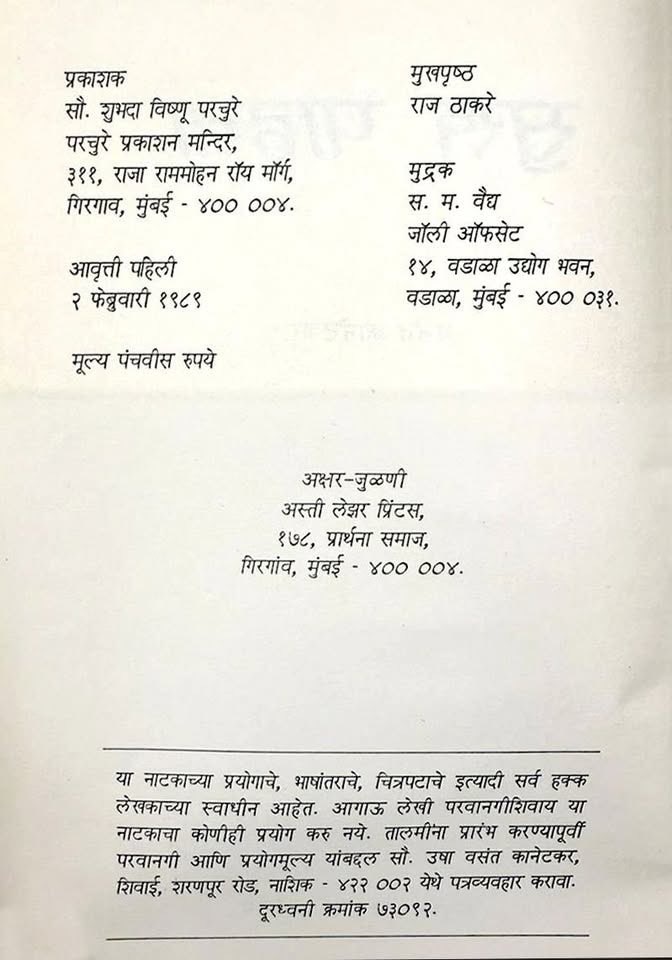 प्रकाशक
सौ. शुभदा विष्णू परचुरे
परचुरे प्रकाशन मन्दिर,
३११, राजा राममोहन रॉय मॉर्ग,
गिरगाव, मुंबई - ४०० ००४.
आवृत्ती पहिली
२ फेब्रुवारी १९८९
मूल्य पंचवीस रुपये
मुखपृष्ठ
राज ठाकरे
मुद्रक
स. म. वैद्य
जॉली ऑफसेट
१४, वडाळा उद्योग भवन,
वडाळा, मुंबई - ४०० ०३१.
अक्षर-जुळणी
अस्ती लेझर प्रिंटस,
१७८, प्रार्थना समाज,
गिरगांव, मुंबई - ४०० ००४.
या नाटकाच्या प्रयोगाचे, भाषांतराचे, चित्रपटाचे इत्यादी सर्व हक्क
लेखकाच्या स्वाधीन आहेत. आगाऊ लेखी परवानगीशिवाय या
नाटकाचा कोणीही प्रयोग करु नये. तालमींना प्रारंभ करण्यापूर्वी
परवानगी आणि प्रयोगमूल्य यांबद्दल सौ. उषा वसंत कानेटकर,
शिवाई, शरणपूर रोड, नाशिक - ४२२ ००२ येथे पत्रव्यवहार करावा.
दूरध्वनी क्रमांक ७३०९२.